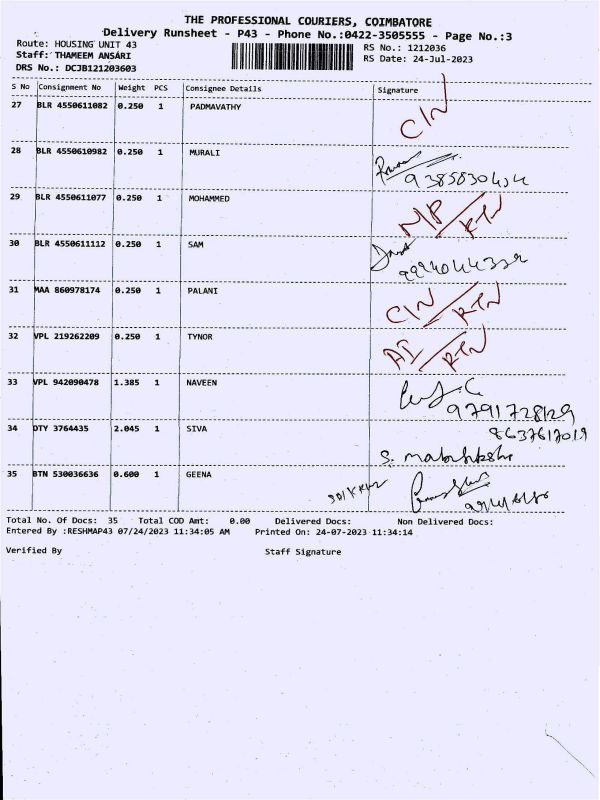 THE PROFESSIONAL COURIERS, COIMBATORE
Delivery Runsheet - P43 - Phone No.:0422-3505555 - Page No.:3
Route: HOUSING UNIT 43
RS No.: 1212036
Staff: THAMEEM ANSARI
RS Date: 24-Jul-2023
DRS No.: DCJB121203603
S No Consignment No Weight PCS Consignee Details Signature
27 BLR 4550611082 0.250 1 PADMAVATHY
CIN
28 BLR 4550610982 0.250 1 MURALI
29 BLR 4550611077 0.250 1 MOHAMMED
RTN
30 BLR 4550611112 0.250 1 SAM
31 MAA 860978174 0.250 1 PALANI
CIN / RTN
32 VPL 219262209 0.250 1 TYNOR
RTN
33 VPL 942090478 1.385 1 NAVEEN
9791728129
34 DTY 3764435 2.045 1 SIVA
8637617019
35 BTN 530036636 0.600 1 GEENA
Total No. Of Docs: 35 Total COD Amt: 0.00 Delivered Docs: Non Delivered Docs:
Entered By :RESHMAP43 07/24/2023 11:34:05 AM Printed On: 24-07-2023 11:34:14
Verified By Staff Signature